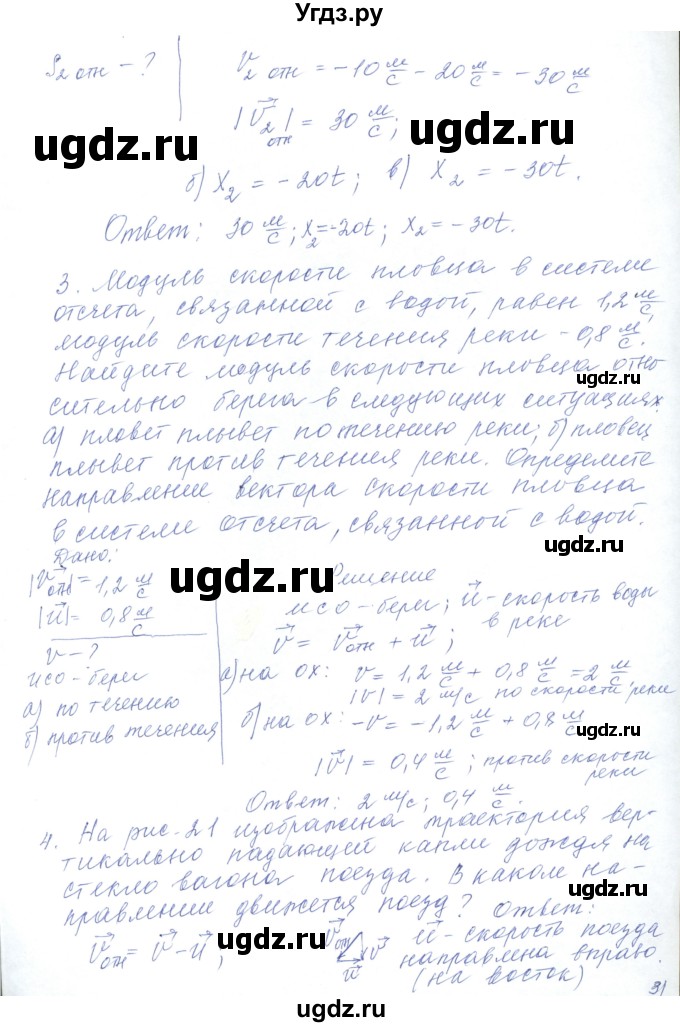 Угдз.ру
S₂ отн – ?
V₂ отн = –10 м/с – 20 м/с = –30 м/с
|V⃗₂ отн| = 30 м/с;
ugdz.ru ugdz.ru
б) X₂ = –20t; в) X₂ = –30t.
Ответ: 30 м/с; X₂=–20t; X₂ = –30t.
3. Модуль скорости пловца в системе
отсчета, связанной с водой, равен 1,2 м/с,
модуль скорости течения реки – 0,8 м/с.
Найдите модуль скорости пловца отно
ugdz.ru
сительно берега в следующих ситуациях:
а) пловец плывет по течению реки; б) пловец
плывет против течения реки. Определите
направление вектора скорости пловца
в системе отсчета, связанной с водой.
ugdz.ru ugdz.ru
Дано:
|V⃗отн| = 1,2 м/с
|u⃗| = 0,8 м/с
v – ?
ИСО – берег
а) по течению
б) против течения
Решение
ИСО – берег; u⃗ – скорость воды
в реке
v⃗ = v⃗отн + u⃗;
а) на ОХ: v = 1,2 м/с + 0,8 м/с = 2 м/с
|v| = 2 м/с по скорости реки
б) на ОХ: –v = –1,2 м/с + 0,8 м/с
|v⃗| = 0,4 м/с; против скорости
реки
Ответ: 2 м/с; 0,4 м/с.
ugdz.ru ugdz.ru
4. На рис. 21 изображена траектория вер-
тикально падающей капли дождя на
стекло вагона поезда. В каком на-
ugdz.ru
правлении движется поезд? Ответ:
v⃗отн = v⃗ – u⃗;
v⃗отн v⃗ u⃗
u⃗ – скорость поезда
направлена вправо.
(на восток)
31
ugdz.ru ugdz.ru